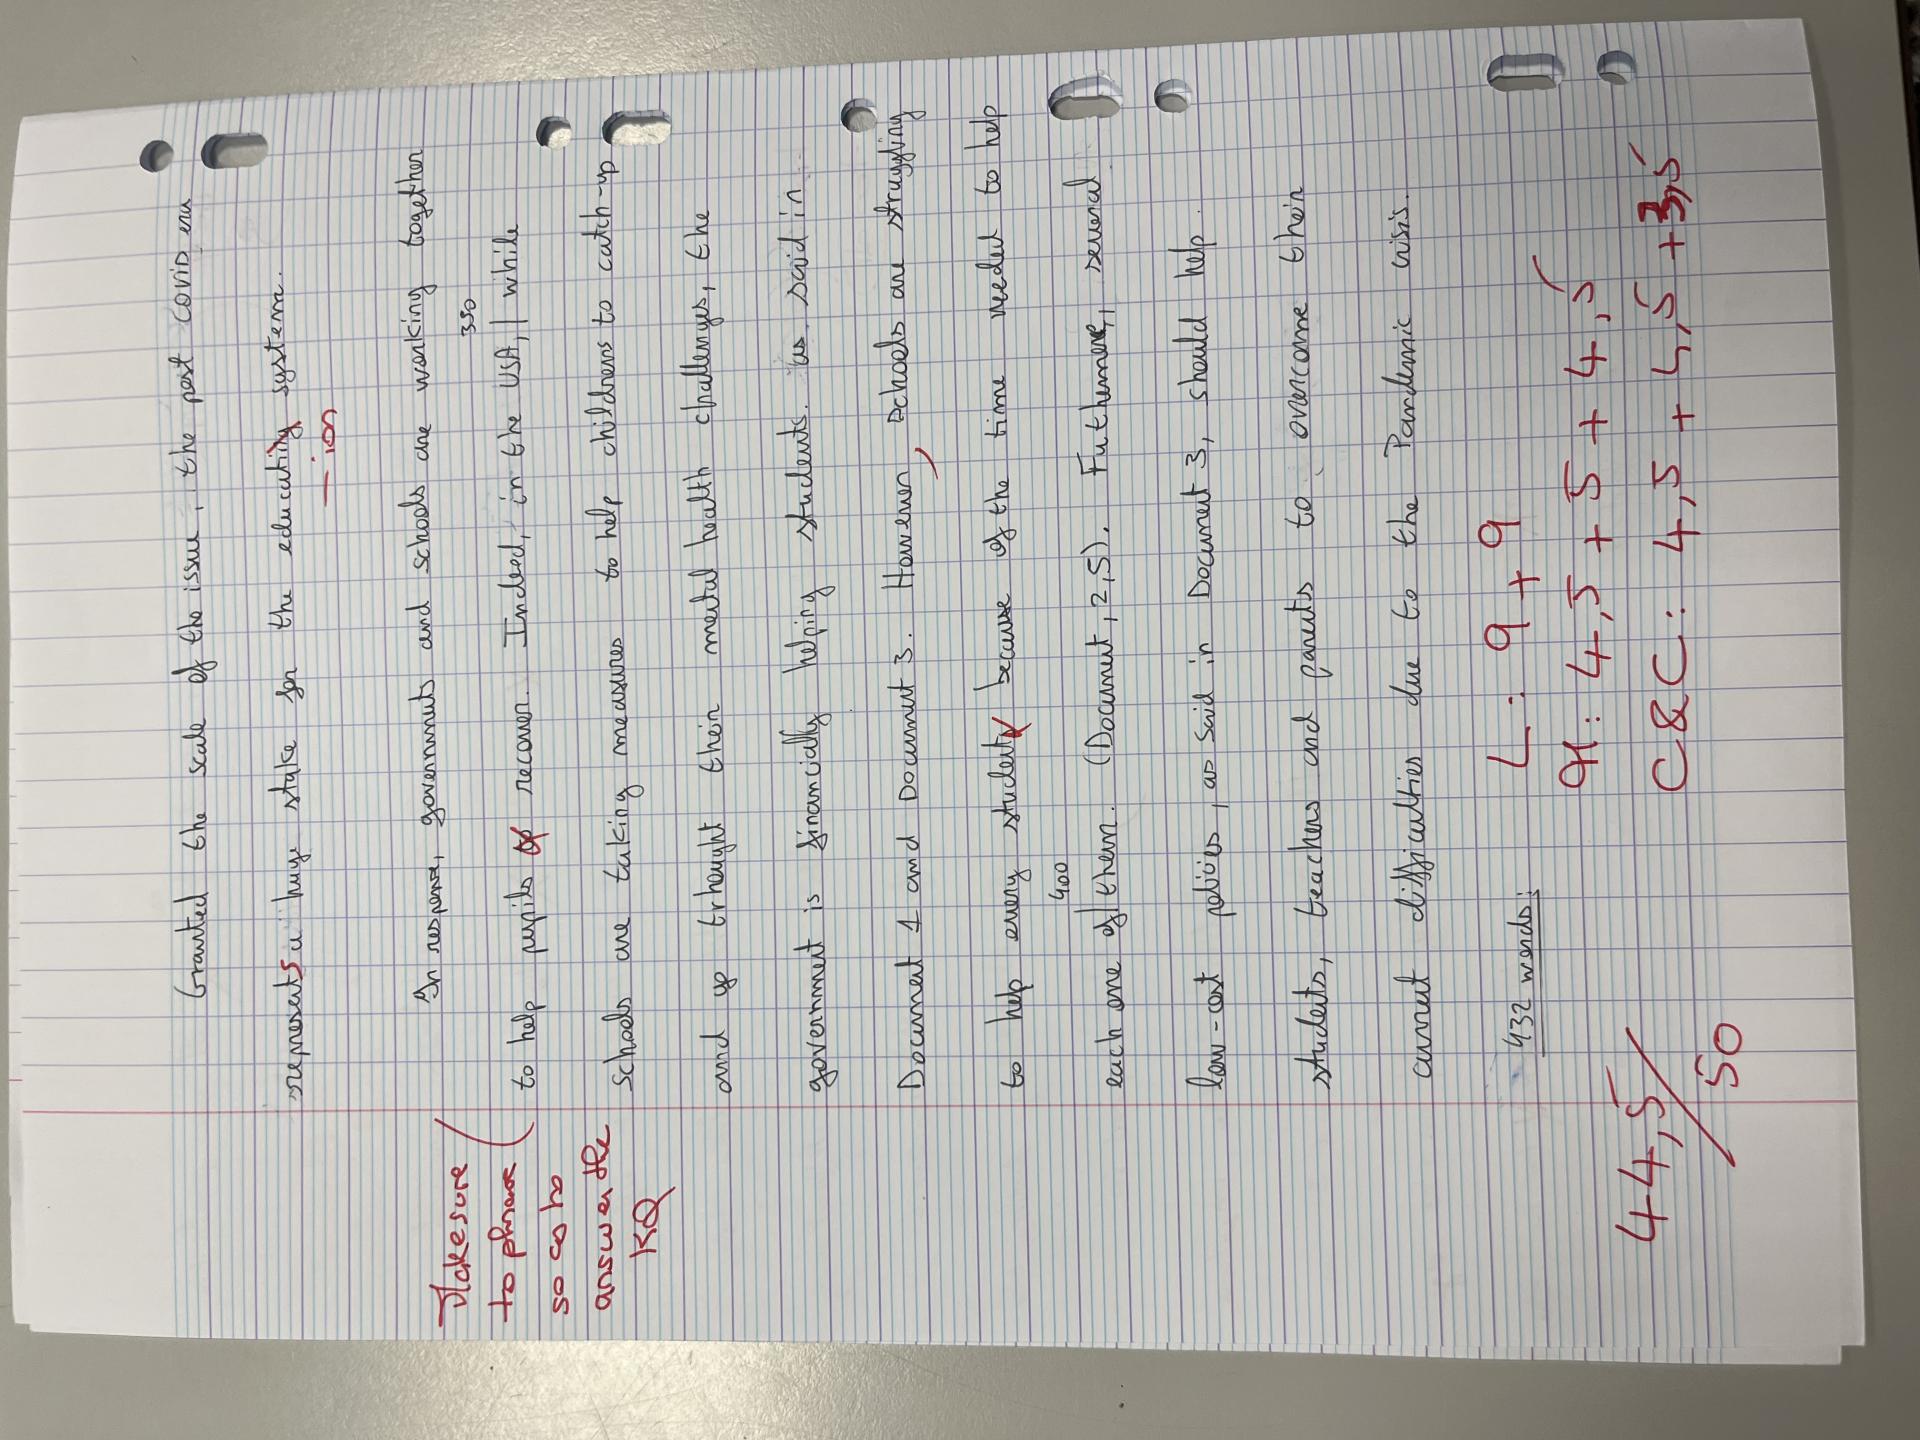 Granted the scale of the issue, the post COVID era
represents a huge stake for the educating system.
-ion
In response, governments and schools are working together
350
to help pupils to recover. Indeed, in the USA, | while
schools are taking measures to help childrens to catch-up
and up trhought their mental health challenges, the
government is financially helping students. as said in
Document 1 and Document 3. However, schools are struggling
to help every students because of the time needed to help
400
each one of | them. (Document, 2,5). Futhermore, several
low-cost policies, as said in Document 3, should help.
students, teachers and parents to overcome their
current difficulties due to the Pandemic crisis.
432 words.
Make sure
to phrase
so as to
answer the
KQ
L : 9 + 9
M : 4,5 + 5 + 4,5
C&C : 4,5 + 4,5 + 3,5
44,5/50